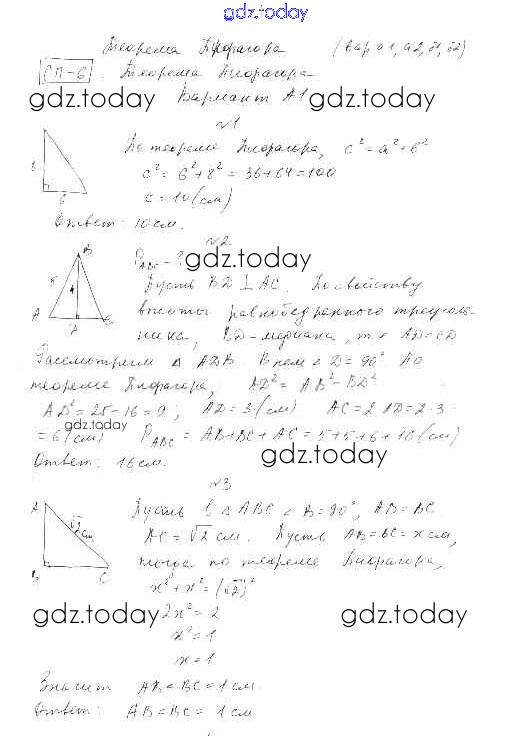 gdz.today
Теорема Пифагора (вар а1, а2, б1, б2)
СП-6. Теорема Пифагора
gdz.today gdz.today
Вариант А1
№1
По теореме Пифагора, c² = a² + b²
8 c² = 6² + 8² = 36 + 64 = 100
6 c = 10 (см)
Ответ: 10 см.
№2
B P_ABC - ? gdz.today
Пусть BD ⊥ AC. По свойству
4 высоты равнобедренного треуголь-
A D C ника, BD - медиана, AD = CD
Рассмотрим Δ ADB. В нем ∠D = 90° По
теореме Пифагора, AD² = AB² - BD²
AD² = 25 - 16 = 9; AD = 3 (см) AC = 2AD = 2·3
gdz.today
= 6 (см) P_ABC = AB + BC + AC = 5 + 5 + 6 + 16 (см)
gdz.today
Ответ: 16 см.
№3
A Пусть в Δ ABC ∠B = 90°, AB = BC.
√2 см AC = √2 см. Пусть AB = BC = x см,
B C тогда по теореме Пифагора,
x² + x² = (√2)²
gdz.today 2x² = 2 gdz.today
x² = 1
x = 1
Значит AB = BC = 1 см.
Ответ: AB = BC = 1 см